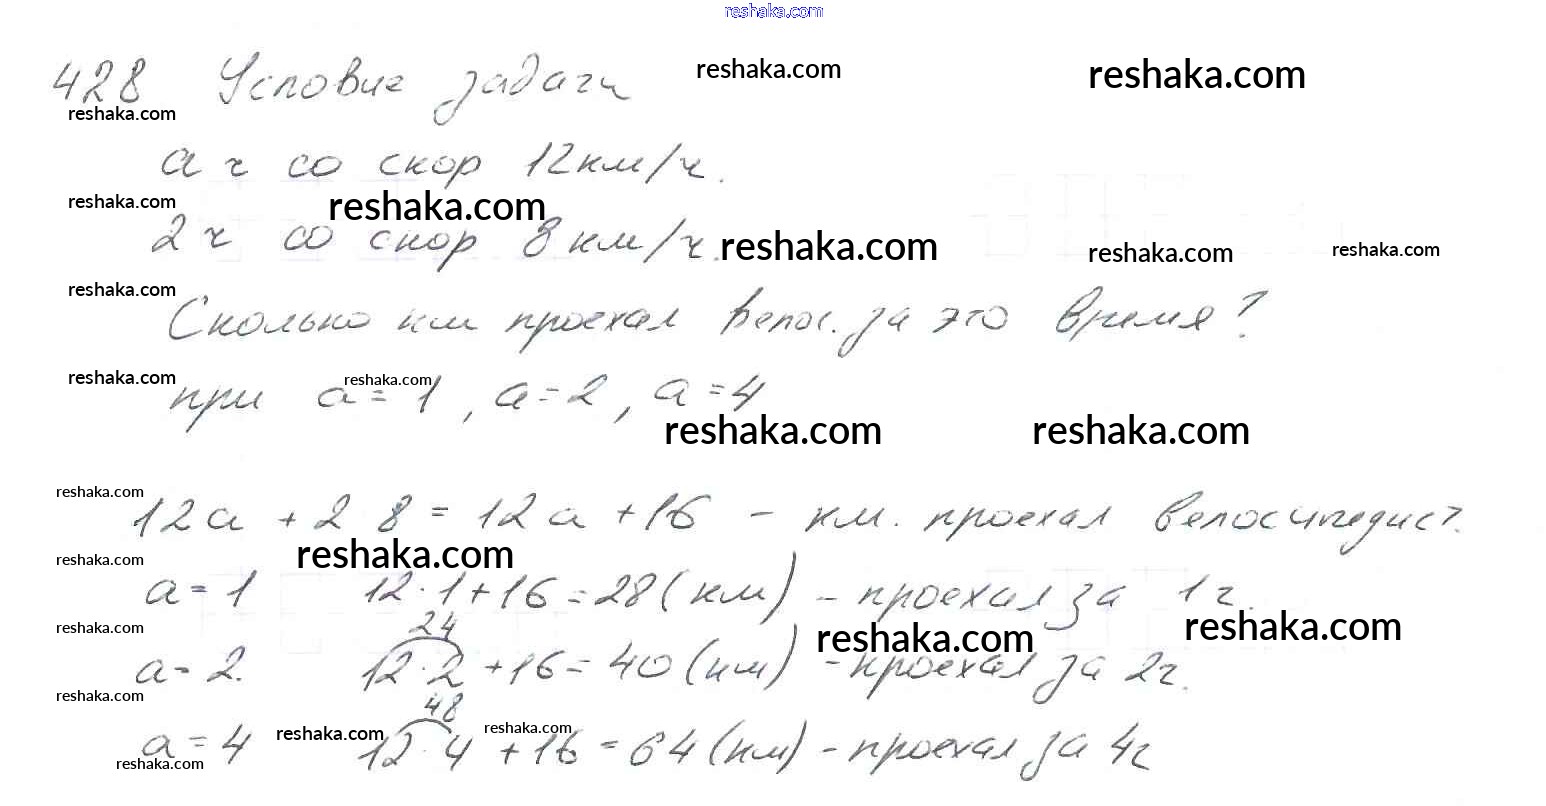 reshaka.com
428 Условие задачи reshaka.com reshaka.com
reshaka.com
а ч со скор 12км/ч.
reshaka.com reshaka.com
2 ч со скор 8 км/ч. reshaka.com reshaka.com reshaka.com
reshaka.com
Сколько км проехал велос. за это время?
reshaka.com reshaka.com
при а = 1, а = 2, а = 4
reshaka.com reshaka.com
reshaka.com
12а + 2 8 = 12а + 16 – км. проехал велосипедист.
reshaka.com reshaka.com
а = 1 12·1 + 16 = 28 (км) – проехал за 1ч.
reshaka.com 24 reshaka.com reshaka.com
а = 2. 12·2 + 16 = 40 (км) – проехал за 2ч.
reshaka.com 48
а = 4 reshaka.com 12·4 reshaka.com + 16 = 64 (км) – проехал за 4ч
reshaka.com